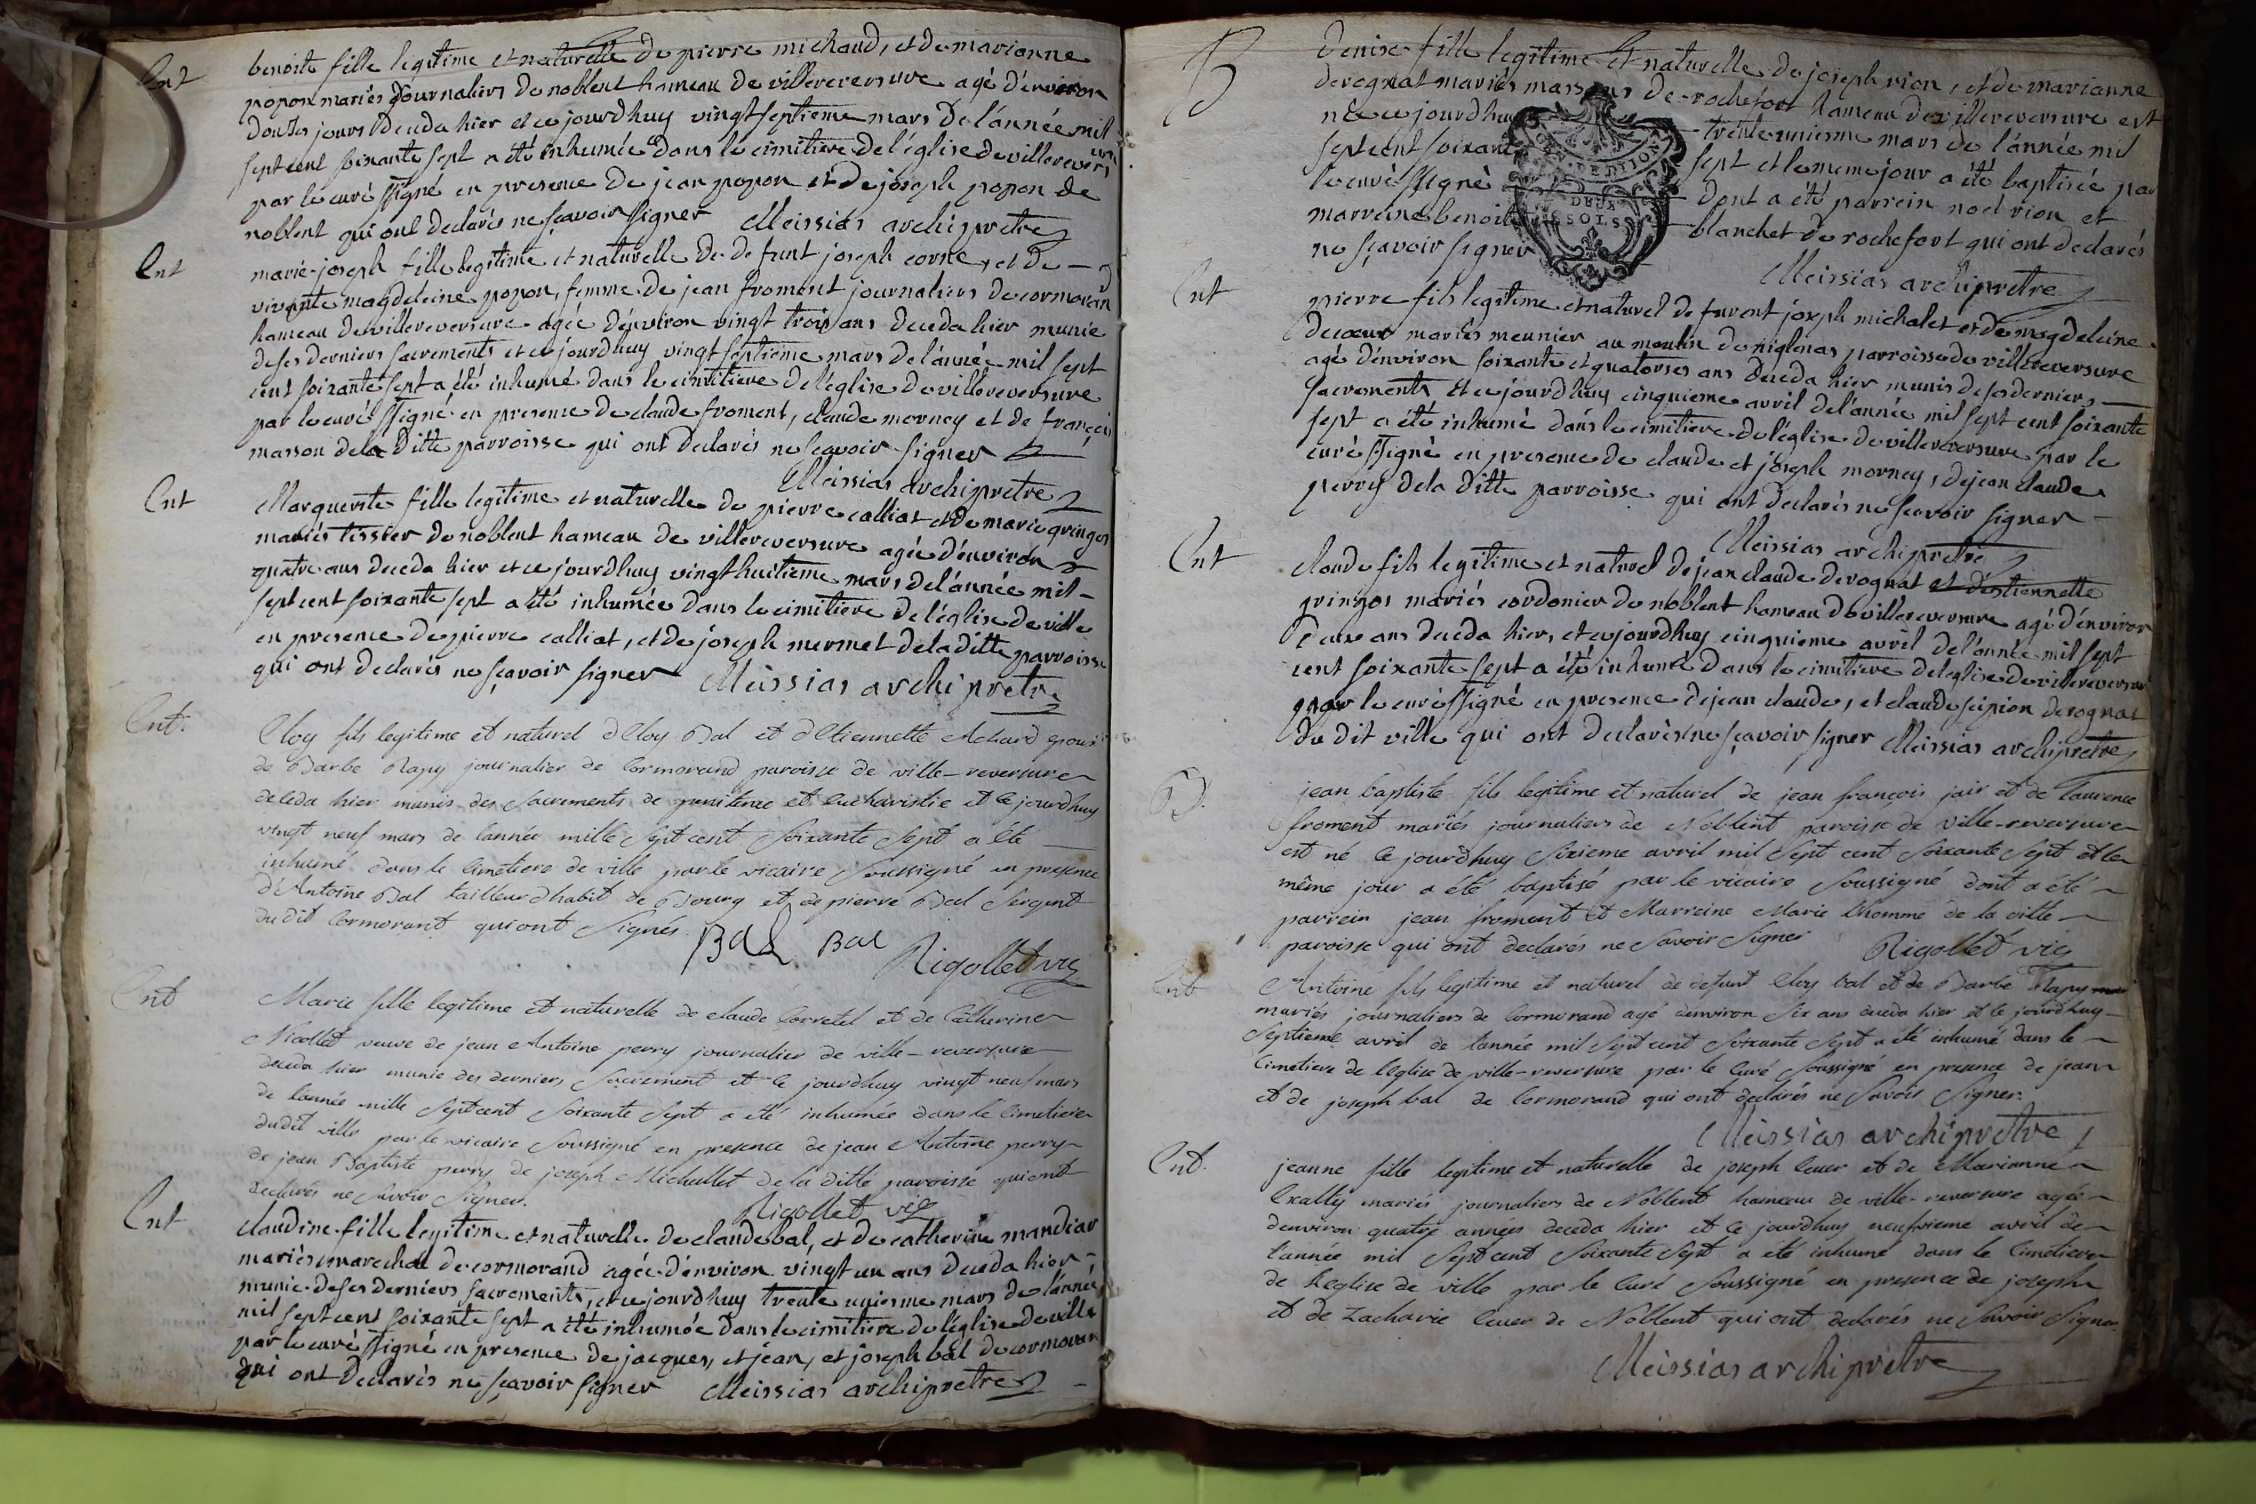 Ent
benoite fille legitime et naturelle de pierre michaud, et de marianne
popon mariés journaliers de noblent hameau de villereversure agé d'environ
douzes jours deceda hier et ce jourdhuy vingt septieme mars de l'année mil
sept cent soixante sept a été inhumée dans le cimitiere de l'église de villerevers
par le curé ssigné en presence de jean popon et de joseph popon de
noblent qui ont declarés ne sçavoir signer Meissias archiprêtre
Ent
marie-joseph fille legitime et naturelle de defunt joseph corne, et de
vivante magdeleine popon, femme de jean froment journaliers de cormoran
hameau de villereversure agée d'environ vingt trois ans deceda hier munie
de ses derniers sacrements et ce jourdhuy vingt septieme mars de l'année mil sept
cent soixante sept a été inhumé dans le cimitiere de l'église de villereversure
par le curé ssigné en presence de claude froment, claude morney et de françois
masson de la ditte parroisse qui ont declarés ne sçavoir signer
Meissias archiprêtre
Ent
Marguerite fille legitime et naturelle de pierre calliat et de marie gringos
mariés tissier de noblent hameau de villereversure agée d'environ
quatre ans deceda hier et ce jourdhuy vingt huitieme mars de l'année mil
sept cent soixante sept a été inhumée dans le cimitiere de l'église de ville
en presence de pierre calliat, et de joseph mermet de la ditte parroisse
qui ont declarés ne sçavoir signer Meissias archiprêtre
Ent.
Eloy fils legitime et naturel d'Eloy Bal et d'Etiennette Achard epoux
de Barbe Rapy journalier de Cormorand paroisse de ville-reversure
deceda hier munis des Sacrements de penitence et Eucharistie et ce jourdhuy
vingt neuf mars de l'année mille Sept cent Soixante Sept a été
inhumé dans le Cimetiere de ville par le vicaire Soussigné en presence
d'Antoine Bal tailleur d'habit de Bourg et de pierre Bal Sergent
du dit Cormorant qui ont Signés. Bal Bal
Rigollet vic
Ent
Marie fille legitime et naturelle de claude Corretel et de Catherine
Nicollet veuve de jean Antoine perry journalier de ville-reversure
deceda hier munie des derniers Sacrement et ce jourdhuy vingt neuf mars
de l'année mille Sept cent Soixante Sept a été inhumée dans le Cimetiere
dudit ville par le vicaire Soussigné en presence de jean Antoine perry
de jean Baptiste perry de joseph Michallet de la ditte paroisse qui ont
declarés ne Savoir Signer. Rigollet vic
Ent
claudine fille legitime et naturelle de claude bal, et de catherine mandiar
mariés marechal de cormorand agée d'environ vingt un ans deceda hier
munie de ses derniers sacrements, et ce jourdhuy trente unieme mars de l'année
mil sept cent soixante sept a été inhumée dans le cimitiere de l'église de ville
par le curé ssigné en presence de jacques, et jean, et joseph bal de cormoran
qui ont declarés ne sçavoir signer Meissias archiprêtre
B
Denise fille legitime et naturelle de joseph rion, et de marianne
devognat mariés massons de rochefort hameau de villereversure est
née ce jourdhuy trente unieme mars de l'année mil
sept cent soixante sept et le meme jour a été baptisée par
le curé ssigné dont a été parrein noel rion et
marreine benoite blanchet de rochefort qui ont declarés
ne sçavoir signer
Meissias archiprêtre
DEUX
SOLS
Ent
pierre fils legitime et naturel de furent joseph michalet et de magdeleine
decoeur mariés meunier au moulin de niglenas parroisse de villereversure
agé d'environ soixante et quatorses ans deceda hier munis de ses derniers
sacrements et ce jourdhuy cinquieme avril de l'année mil sept cent soixante
sept a été inhumé dans le cimitiere de l'église de villereversure par le
curé ssigné en presence de claude et joseph morney, de jean claude
perry de la ditte parroisse qui ont declarés ne sçavoir signer
Meissias archiprêtre
Ent
claude fils legitime et naturel de jean claude devognat et d'estiennette
gringos mariés cordonier de noblent hameau de villereversure agé d'environ
deux ans deceda hier, et ce jourdhuy cinquieme avril de l'année mil sept
cent soixante sept a été inhumé dans le cimitiere de l'eglise de villereversure
par le curé ssigné en presence de jean claude, et claude scipion devognat
du dit ville qui ont declarés ne sçavoir signer Meissias archiprêtre
B.
jean baptiste fils legitime et naturel de jean françois jair et de Laurence
froment mariés journaliers de Noblent paroisse de ville-reversure
est né ce jourdhuy Sixieme avril mil Sept cent Soixante Sept et le
même jour a été baptisé par le vicaire Soussigné dont a été
parrein jean froment et Marreine Marie lhomme de la ditte
paroisse qui ont declarés ne Savoir Signer Rigollet vic
Ent
Antoine fils legitime et naturel de defunt Eloy bal et de Barbe Rapy
mariés journaliers de Cormorand agé denviron Six ans deceda hier et ce jourdhuy
Septieme avril de l'année mil Sept cent Soixante Sept a été inhumé dans le
Cimetiere de l'Eglise de ville-reversure par le Curé Soussigné en presence de jean
et de joseph bal de Cormorand qui ont declarés ne Savoir Signer.
Meissias archiprêtre
Ent.
jeanne fille legitime et naturelle de joseph Cuer et de Marianne
Exally mariés journaliers de Noblent hameau de ville-reversure agée
denviron quatre années deceda hier et ce jourdhuy neufvieme avril de
l'année mil Sept cent Soixante Sept a été inhumé dans le Cimetiere
de l'Eglise de ville par le Curé Soussigné en presence de joseph
et de Zacharie Cuer de Noblent qui ont declarés ne Savoir Signer.
Meissias archiprêtre